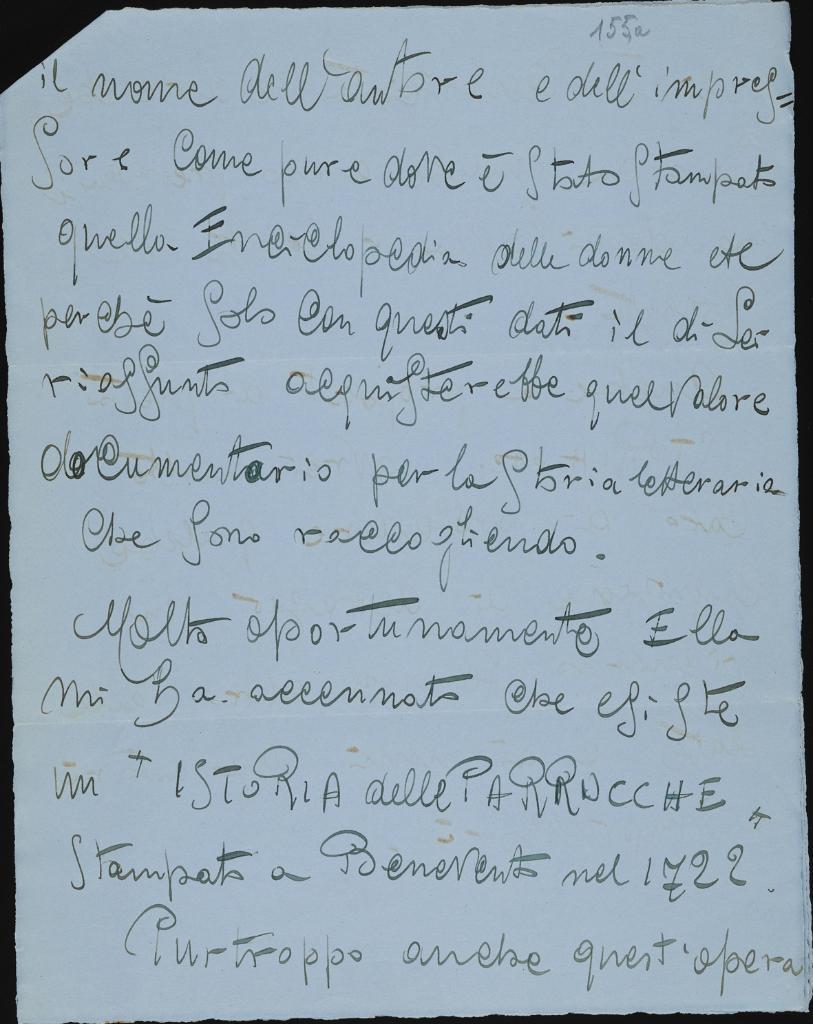 155a
il nome dell'autore e dell'impres=
sore come pure dove è stato stampato
quella Enciclopedia delle donne etc
perchè solo con questi dati il di Lei
riassunto acquisterebbe quel valore
documentario per la storia letteraria
che sono raccogliendo.
Molto oportunamente Ella
mi ha accennato che esiste
un + ISTORIA delle PARRUCCHE +
stampato a Benevento nel 1722.
Purtroppo anche quest'opera